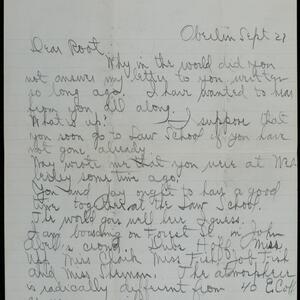 Oberlin Sept 29
Dear Root,
Why in the world did you
not answer my letter to you written
so long ago. I have wanted to hear
from you all along.
What is up? I suppose that
you soon go to Law School if you have
not gone already.
wrote me that you were at
some time ago.
You and Jay ought to have a good
time together at the Law School.
The world goes well here I guess.
I am boarding on Forest St, in John
crowd. Miss
Miss Clark Miss Fish, Bob Fish
and Miss Sherman. The atmosphere
is radically different from 40 E Col